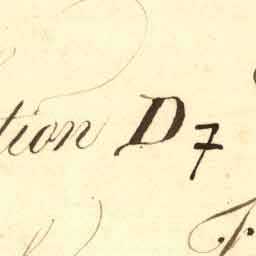 tion D7